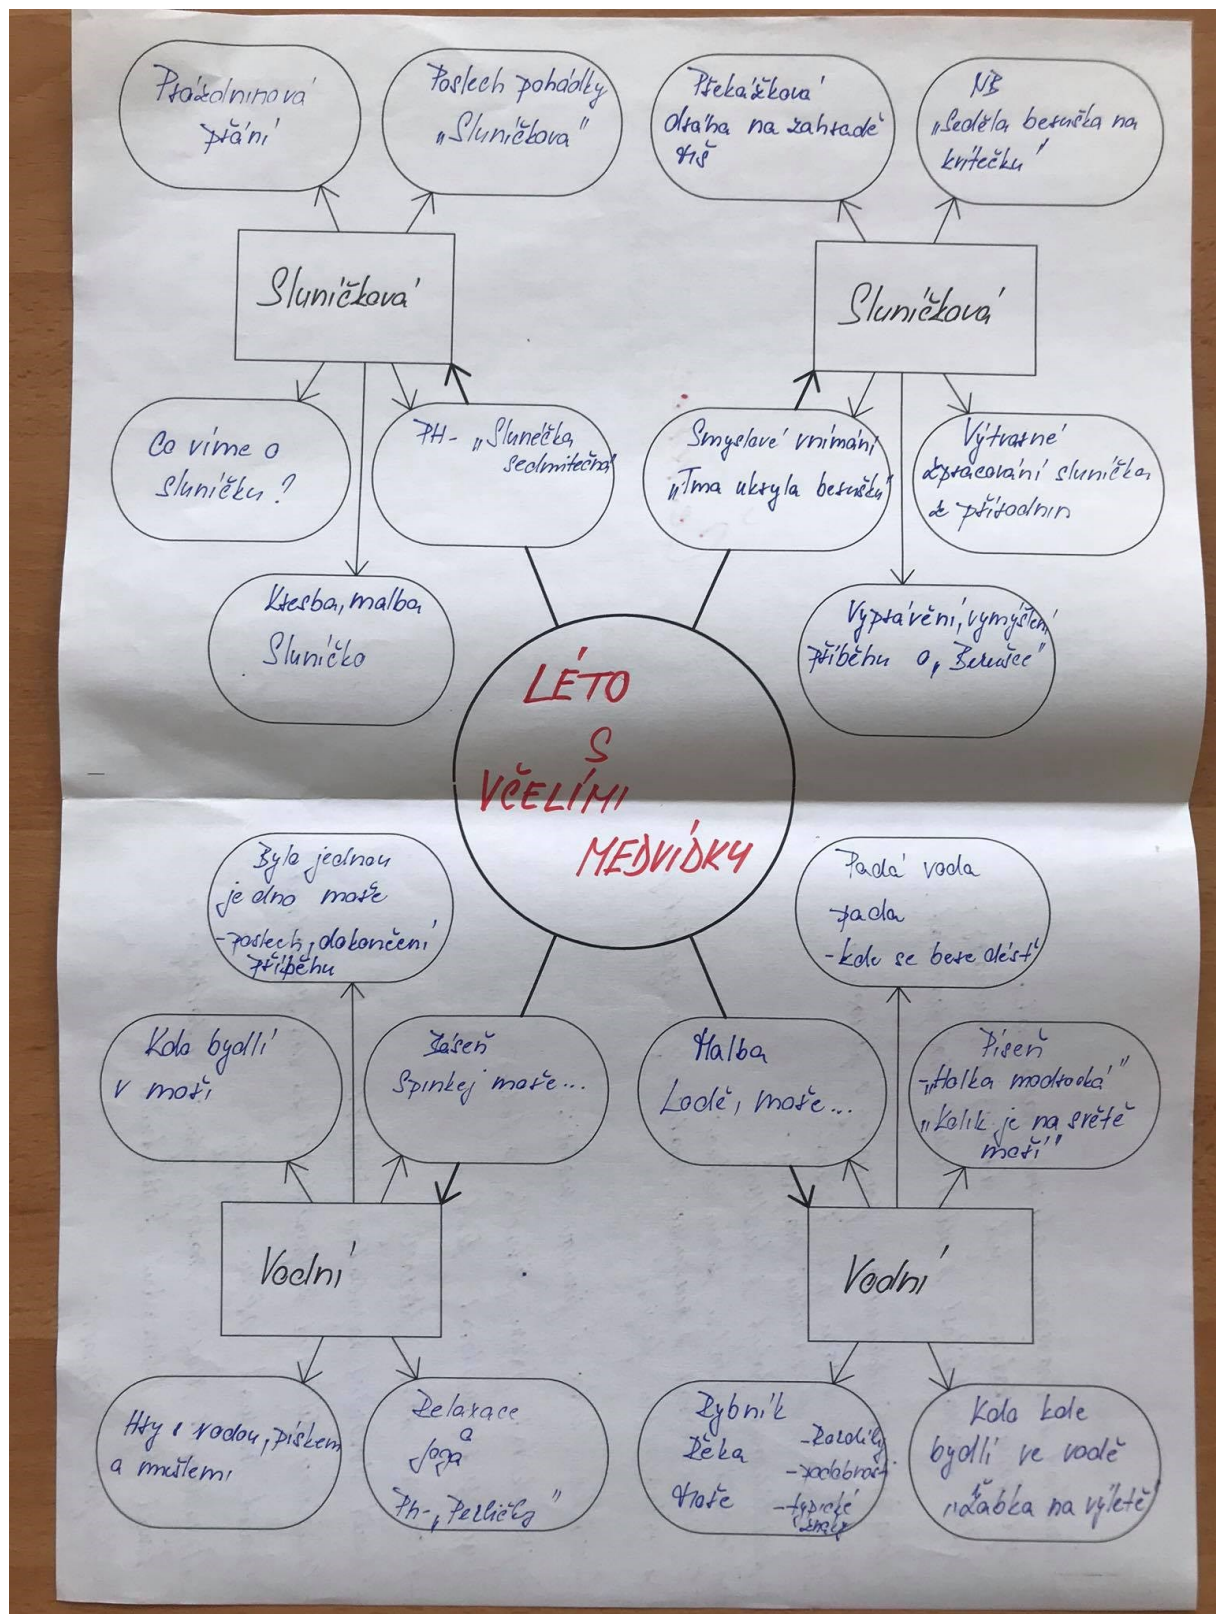 Prázdninová
přání
Poslech pohádky
„Sluníčkova"
Překážková
dráha na zahradě
MŠ
NB
„Seděla beruška na
kvítečku"
Sluníčková
Sluníčková
Co víme o
sluníčku?
PH- „Slunéčka
sedmitečná
Smyslové vnímání
„Tma ukryla berušku"
Výtvarné
zpracování sluníčka
z přírodnin
Kresba, malba
Sluníčko
Vyprávění, vymýšlení
příběhu o „Berušce"
LÉTO
S
VČELÍMI
MEDVÍDKY
Bylo jednou
jedno moře
-poslech, dokončení
příběhu
Padá voda
pada
-kde se bere déšť
Kdo bydlí
v moři
Báseň
Spinkej moře...
Malba
Lodě, moře...
Píseň
-„Holka modrooká"
„Kolik je na světě
moří"
Vodní
Vodní
Hry s vodou, pískem
a mušlemi
Relaxace
a
joga
Ph-„Perličky"
Rybník
Řeka
Moře
-Rozdíly
-podobnost
-typické
znaky
Kdo kde
bydlí ve vodě
„Žabka na výletě"